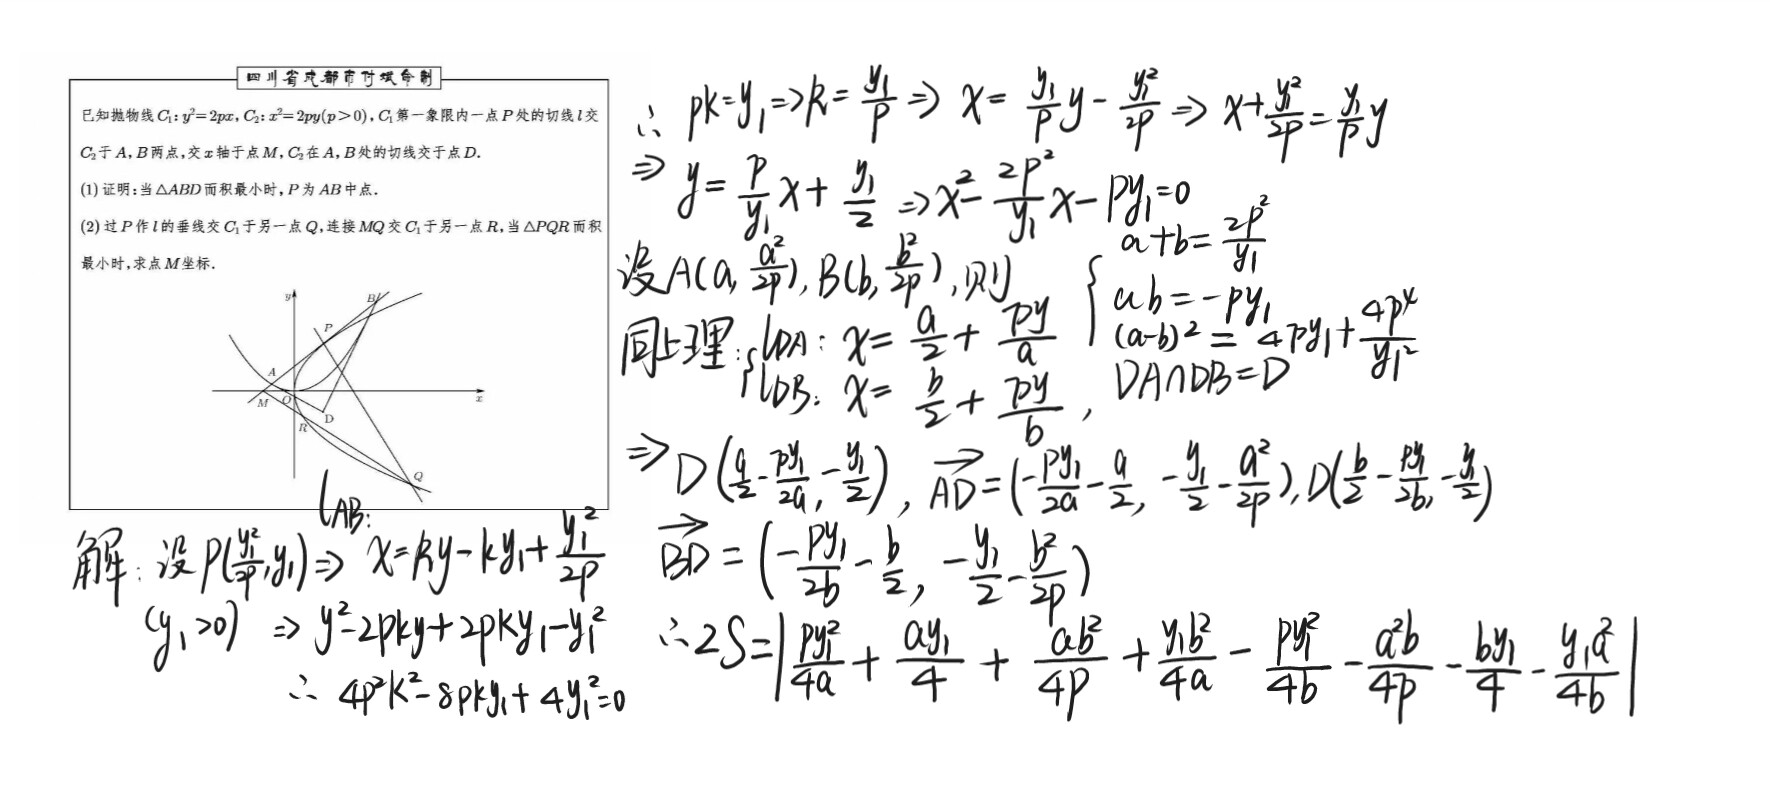 四川省成都市付斌命制
已知抛物线 C₁: y²=2px, C₂: x²=2py(p>0), C₁ 第一象限内一点 P 处的切线 l 交
C₂ 于 A, B 两点, 交 x 轴于点 M, C₂ 在 A, B 处的切线交于点 D.
(1) 证明: 当 △ABD 面积最小时, P 为 AB 中点.
(2) 过 P 作 l 的垂线交 C₁ 于另一点 Q, 连接 MQ 交 C₁ 于另一点 R, 当 △PQR 面积
最小时, 求点 M 坐标.
y
B
P
A
M
O
x
D
R
Q
l_AB:
解: 设 P(y₁²/2p, y₁) ⇒ x=ky-ky₁+y₁²/2p
(y₁>0) ⇒ y²-2pky+2pky₁-y₁²
∴ 4p²k²-8pky₁+4y₁²=0
∴ pk=y₁ ⇒ k=y₁/p ⇒ x=y₁/p y-y₁²/2p ⇒ x+y₁²/2p=y₁/p y
⇒ y=p/y₁ x+y₁/2 ⇒ x²-2p²/y₁ x-py₁=0
设 A(a, a²/2p), B(b, b²/2p), 则
{ a+b=2p²/y₁
ab=-py₁
(a-b)²=4py₁+4p⁴/y₁²
同上理: { l_DA: x=a/2+py/a
l_DB: x=b/2+py/b , DA∩DB=D
⇒ D(a/2-py₁/2a, -y₁/2), AD→=(-py₁/2a-a/2, -y₁/2-a²/2p), D(b/2-py₁/2b, -y₁/2)
BD→=(-py₁/2b-b/2, -y₁/2-b²/2p)
∴ 2S=|py₁²/4a+ay₁/4+ab²/4p+y₁b²/4a-py₁²/4b-a²b/4p-by₁/4-y₁a²/4b|